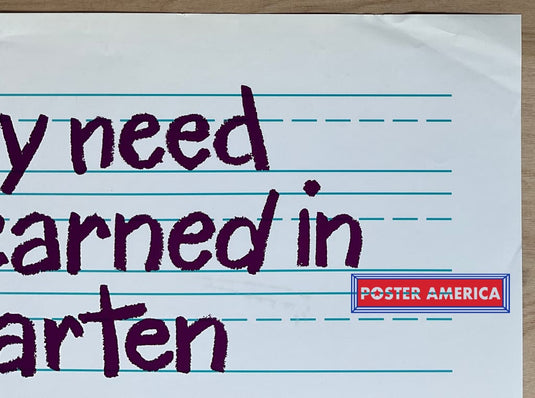 y need
earned in
arten
POSTER AMERICA